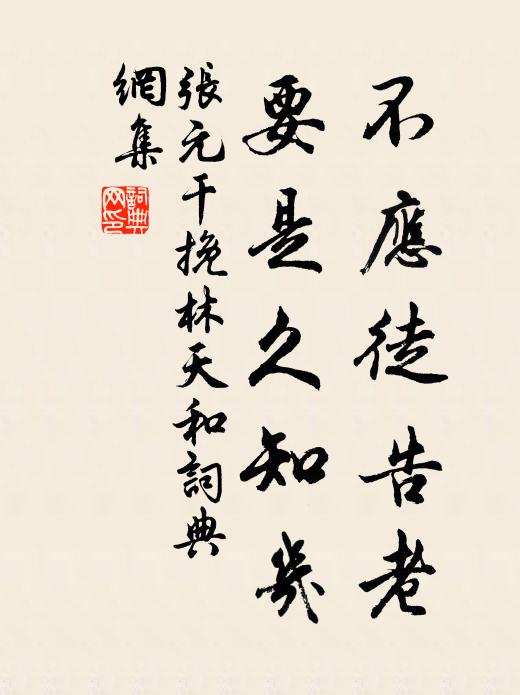 不應徒告老
要是久知幾
張元干挽林天和詞典
網集
詞典
网印